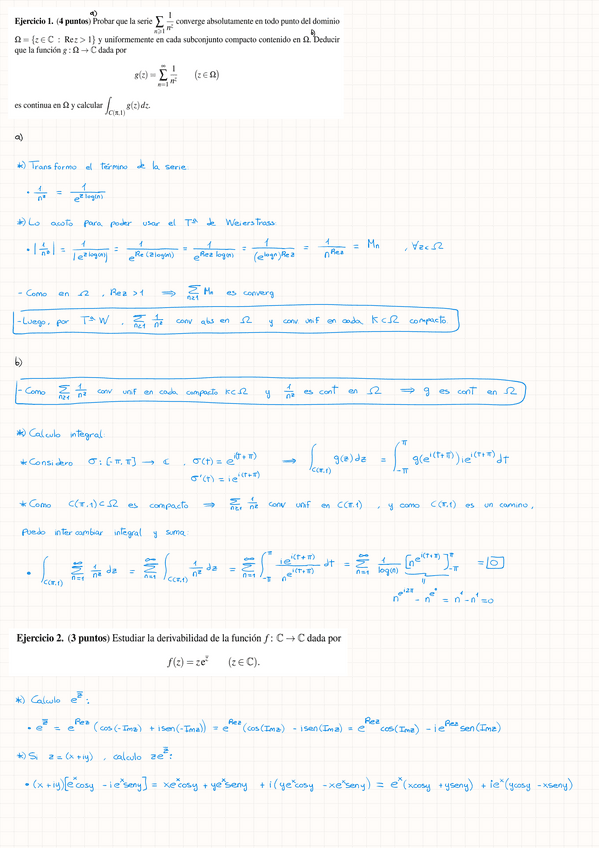 a)
Ejercicio 1. (4 puntos) Probar que la serie ∑_{n≥1} 1/n^z converge absolutamente en todo punto del dominio
Ω = {z ∈ ℂ : Re z > 1} y uniformemente en cada subconjunto compacto contenido en Ω. Deducir
b)
que la función g : Ω → ℂ dada por
g(z) = ∑_{n=1}^{∞} 1/n^z (z ∈ Ω)
es continua en Ω y calcular ∫_{C(π,1)} g(z) dz.
a)
*) Transformo el término de la serie
• 1/n^z = 1/e^{z log(n)}
*) Lo acoto para poder usar el Tª de Weierstrass
• |1/n^z| = 1/|e^{z log(n)}| = 1/e^{Re(z log(n))} = 1/e^{Re z log(n)} = 1/(e^{log n})^{Re z} = 1/n^{Re z} = Mn , ∀z ∈ Ω
- Como en Ω , Re z > 1 ⟹ ∑_{n≥1} Mn es converg
- Luego, por Tª W , ∑_{n≥1} 1/n^z conv abs en Ω y conv unif en cada K ⊂ Ω compacto
b)
- Como ∑_{n≥1} 1/n^z conv unif en cada compacto K ⊂ Ω y 1/n^z es cont en Ω ⟹ g es cont en Ω
*) Calculo integral:
* Considero σ : [-π, π] → ℂ , σ(t) = e^{i(t+π)} ⟹ ∫_{C(π,1)} g(z) dz = ∫_{-π}^{π} g(e^{i(t+π)}) i e^{i(t+π)} dt
σ'(t) = i e^{i(t+π)}
* Como C(π,1) ⊂ Ω es compacto ⟹ ∑_{n≥1} 1/n^z conv unif en C(π,1) , y como C(π,1) es un camino,
puedo intercambiar integral y suma
• ∫_{C(π,1)} ∑_{n=1}^{∞} 1/n^z dz = ∑_{n=1}^{∞} ∫_{C(π,1)} 1/n^z dz = ∑_{n=1}^{∞} ∫_{-π}^{π} i e^{i(t+π)}/n^{e^{i(t+π)}} dt = ∑_{n=1}^{∞} 1/log(n) [n^{e^{i(t+π)}}]_{-π}^{π} = 0
n^{e^{i2π}} - n^{e^0} = n^1 - n^1 = 0
Ejercicio 2. (3 puntos) Estudiar la derivabilidad de la función f : ℂ → ℂ dada por
f(z) = z e^{z̄} (z ∈ ℂ).
*) Calculo e^{z̄} :
• e^{z̄} = e^{Re z} (cos(-Im z) + i sen(-Im z)) = e^{Re z} (cos(Im z) - i sen(Im z) = e^{Re z} cos(Im z) - i e^{Re z} sen(Im z)
*) Si z = (x + iy) , calculo z e^{z̄} :
• (x + iy)[e^x cos y - i e^x sen y] = x e^x cos y + y e^x sen y + i (y e^x cos y - x e^x sen y) = e^x (x cos y + y sen y) + i e^x (y cos y - x sen y)